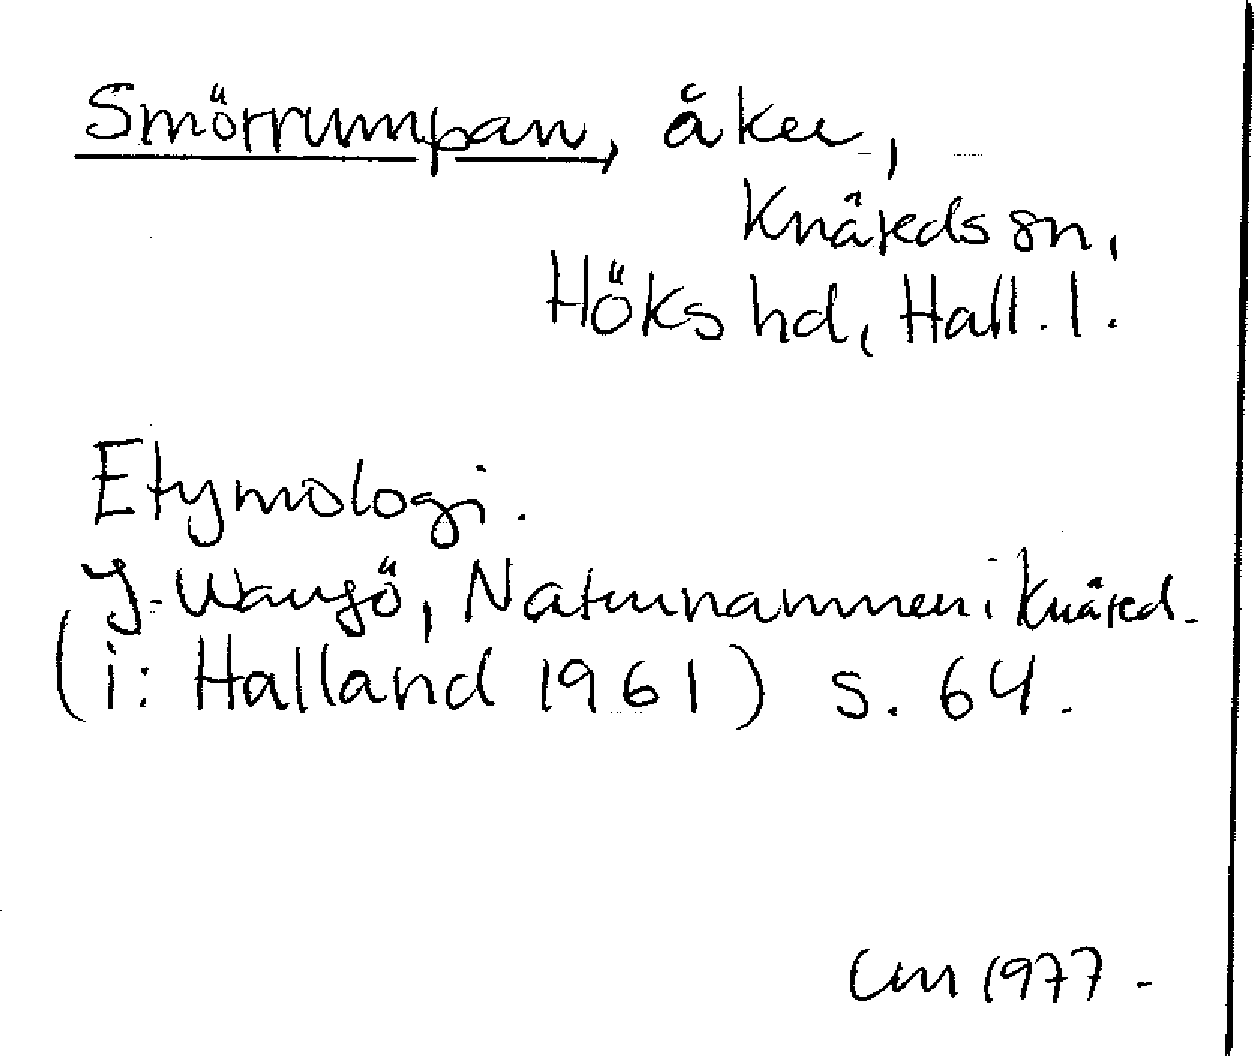 Smörrumpan, åker,
Knäreds sn,
Höks hd, Hall. l.
Etymologi.
J. Wangö, Naturnamnen i Knäred.
(i: Halland 1961) s. 64.
CM 1977.